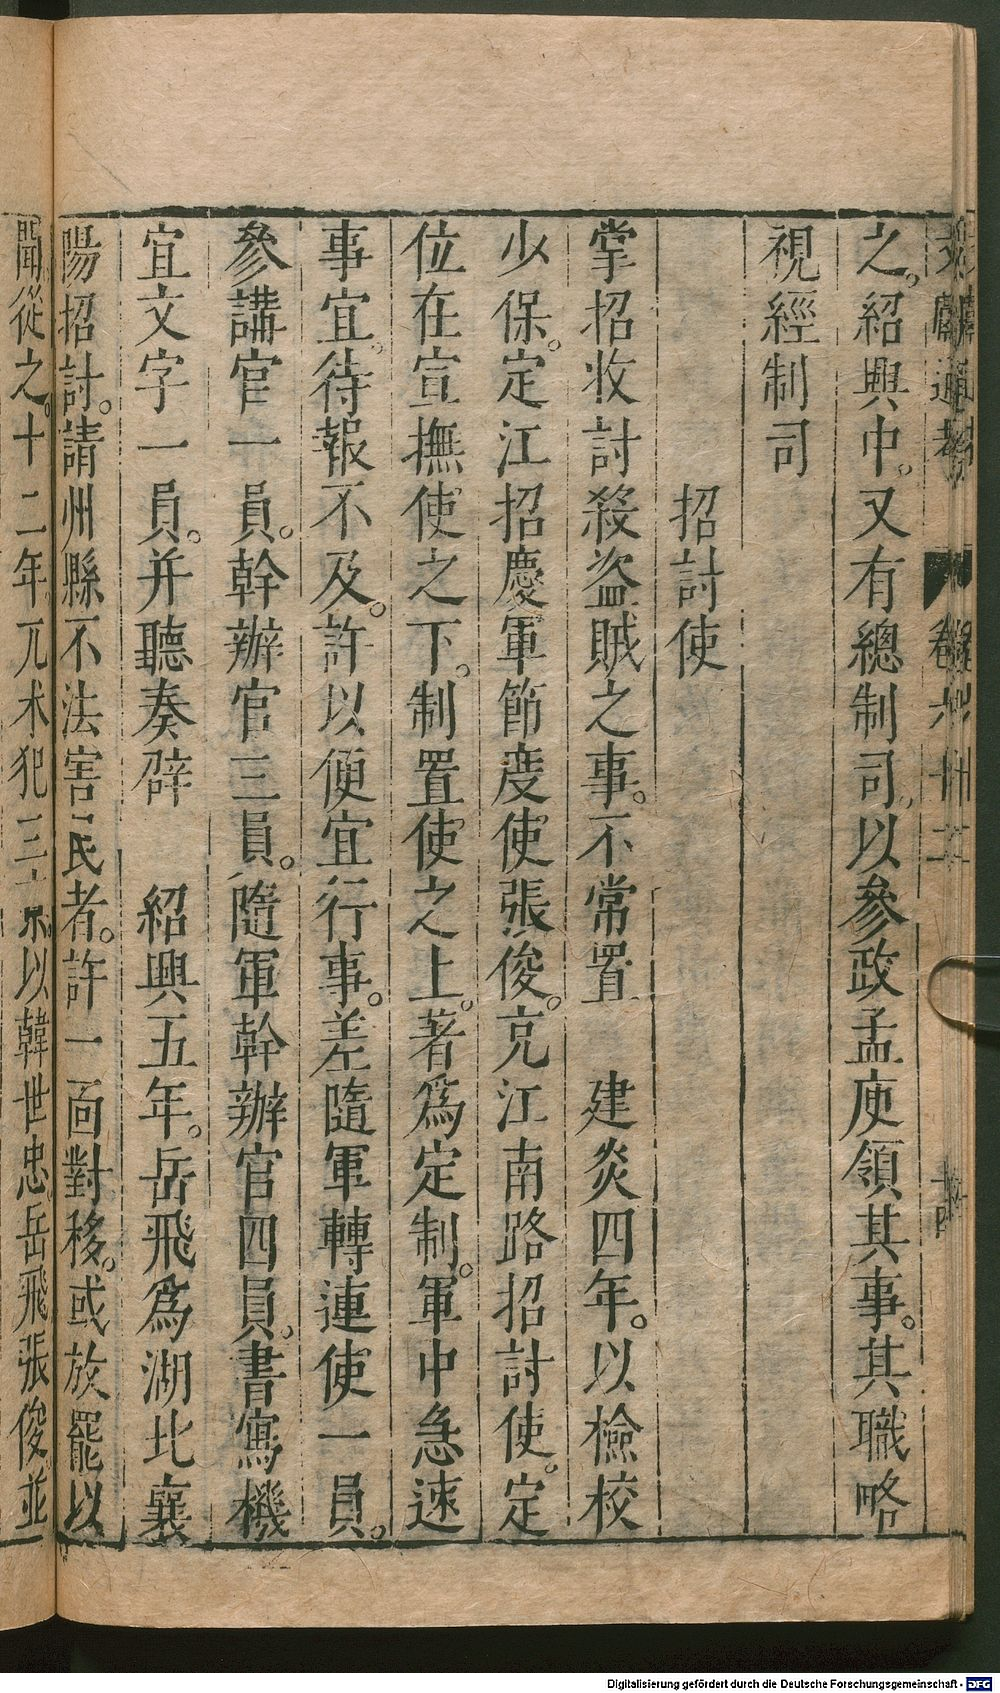 之。紹興中。又有總制司。以參政孟庾領其事。其職略
視經制司
招討使
掌招收討殺盜賊之事。不常置　建炎四年。以檢校
少保。定江招慶軍節度使張俊。充江南路招討使。定
位在宣撫使之下。制置使之上。著爲定制。軍中急速
事宜。待報不及。許以便宜行事。差隨軍轉運使一員。
參講官一員。幹辦官三員。隨軍幹辦官四員。書寫機
宜文字一員。并聽奏辟　紹興五年。岳飛爲湖北襄
陽招討。請州縣不法害民者。許一面對移。或放罷以
聞從之。十二年兀术犯三京。以韓世忠岳飛張俊並
Digitalisierung gefördert durch die Deutsche Forschungsgemeinschaft - DFG